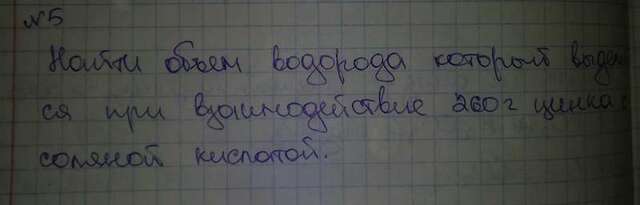 №5
Найти объем водорода который выдел
ся при взаимодействие 260г цинка с
соляной кислотой.